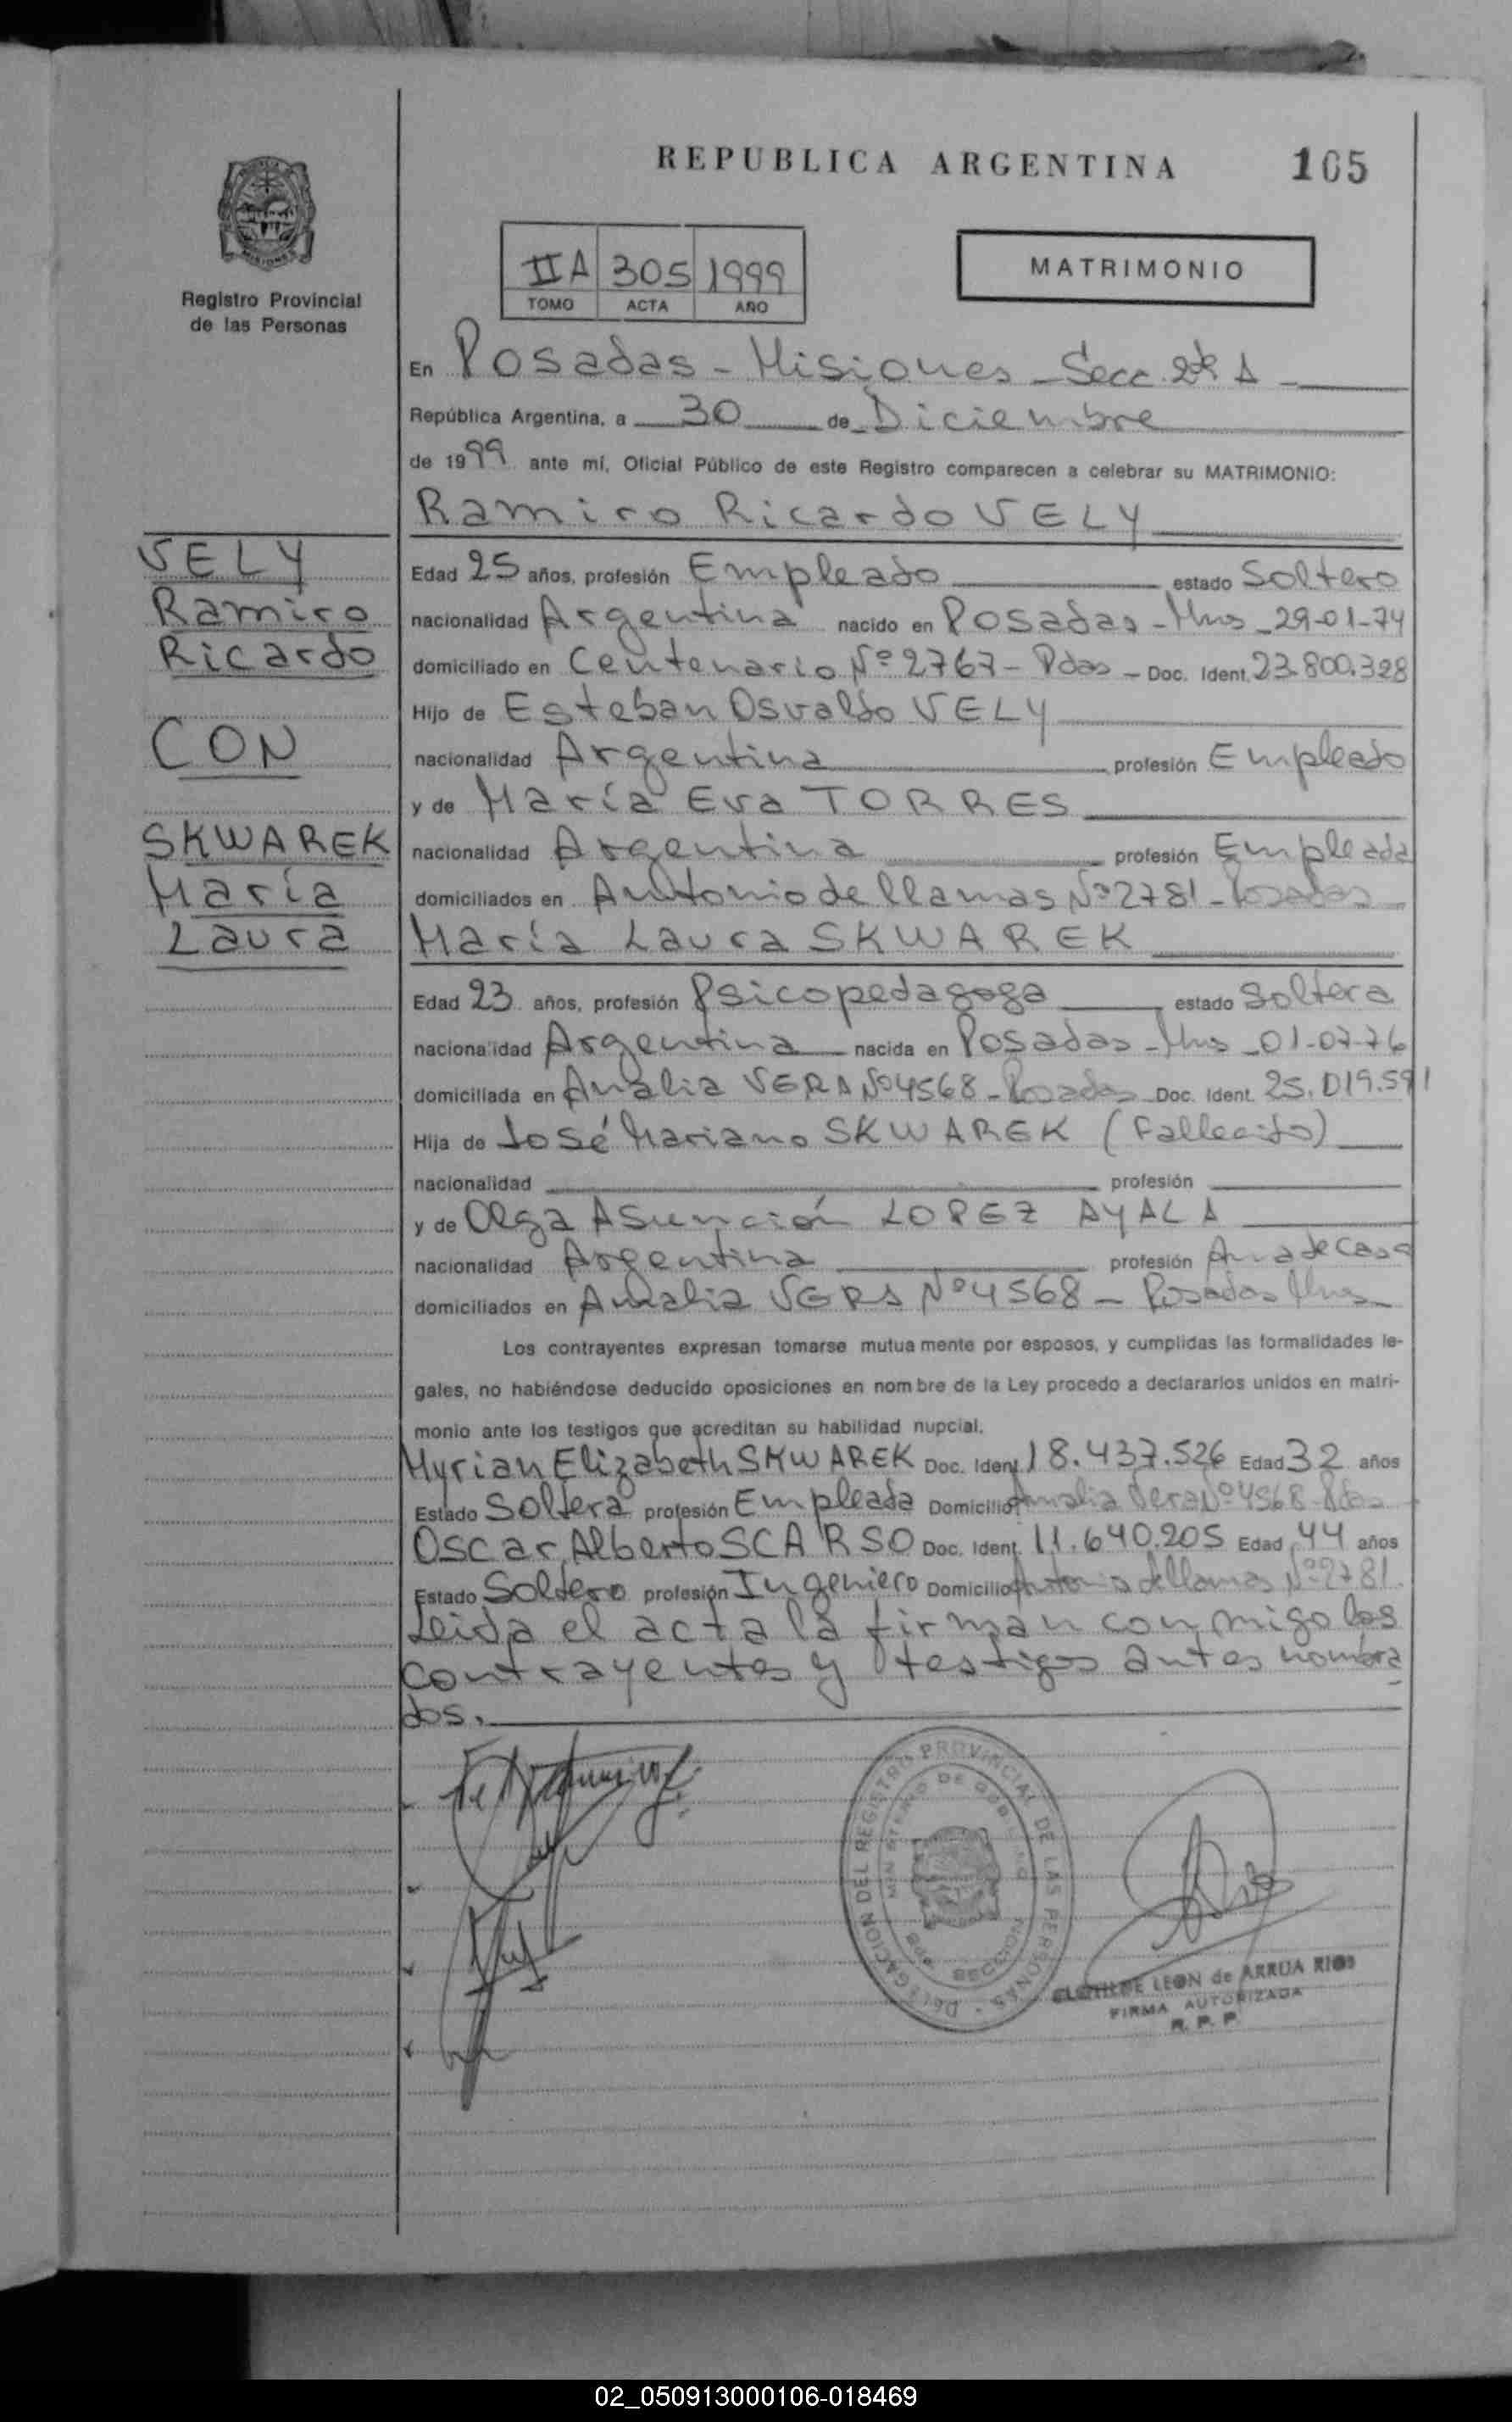 REPUBLICA ARGENTINA
105
MISIONES
Registro Provincial
de las Personas
IIA 305 1999
TOMO ACTA AÑO
MATRIMONIO
En Posadas - Misiones - Secc. A
República Argentina, a 30 de Diciembre
de 1999 ante mí, Oficial Público de este Registro comparecen a celebrar su MATRIMONIO:
Ramiro Ricardo VELY
VELY
Ramiro
Ricardo
CON
SKWAREK
María
Laura
Edad 25 años, profesión Empleado estado Soltero
nacionalidad Argentina nacido en Posadas - Mnes - 29-01-74
domiciliado en Centenario Nº 2767 - Pdas - Doc. Ident. 23.800.328
Hijo de Esteban Osvaldo VELY
nacionalidad Argentina profesión Empleado
y de María Eva TORRES
nacionalidad Argentina profesión Empleada
domiciliados en Antonio de llamas Nº 2781 - Posadas
María Laura SKWAREK
Edad 23 años, profesión Psicopedagoga estado Soltera
nacionalidad Argentina nacida en Posadas - Mnes - 01-07-76
domiciliada en Amalia VERA Nº 4568 - Posadas - Doc. Ident. 25.019.591
Hija de José Mariano SKWAREK (Fallecido)
nacionalidad profesión
y de Olga Asunción LOPEZ AYALA
nacionalidad Argentina profesión Ama de Casa
domiciliados en Amalia VERA Nº 4568 - Posadas Mnes -
Los contrayentes expresan tomarse mutua mente por esposos, y cumplidas las formalidades le-
gales, no habiéndose deducido oposiciones en nom bre de la Ley procedo a declararlos unidos en matri-
monio ante los testigos que acreditan su habilidad nupcial.
Myrian Elizabeth SKWAREK Doc. Ident. 18.437.526 Edad 32 años
Estado Soltera profesión Empleada Domicilio Amalia Vera Nº 4568 - Pdas
Oscar Alberto SCARSO Doc. Ident. 11.640.205 Edad 44 años
Estado Soltero profesión Ingeniero Domicilio Antonio de llamas Nº 2781
Leida el acta la firman conmigo los
contrayentes y testigos antes nombra
dos.
DELEGACION DEL REGISTRO PROVINCIAL DE LAS PERSONAS
LEON de ARRUA RIOS
FIRMA AUTORIZADA
R. P. P.
02_050913000106-018469